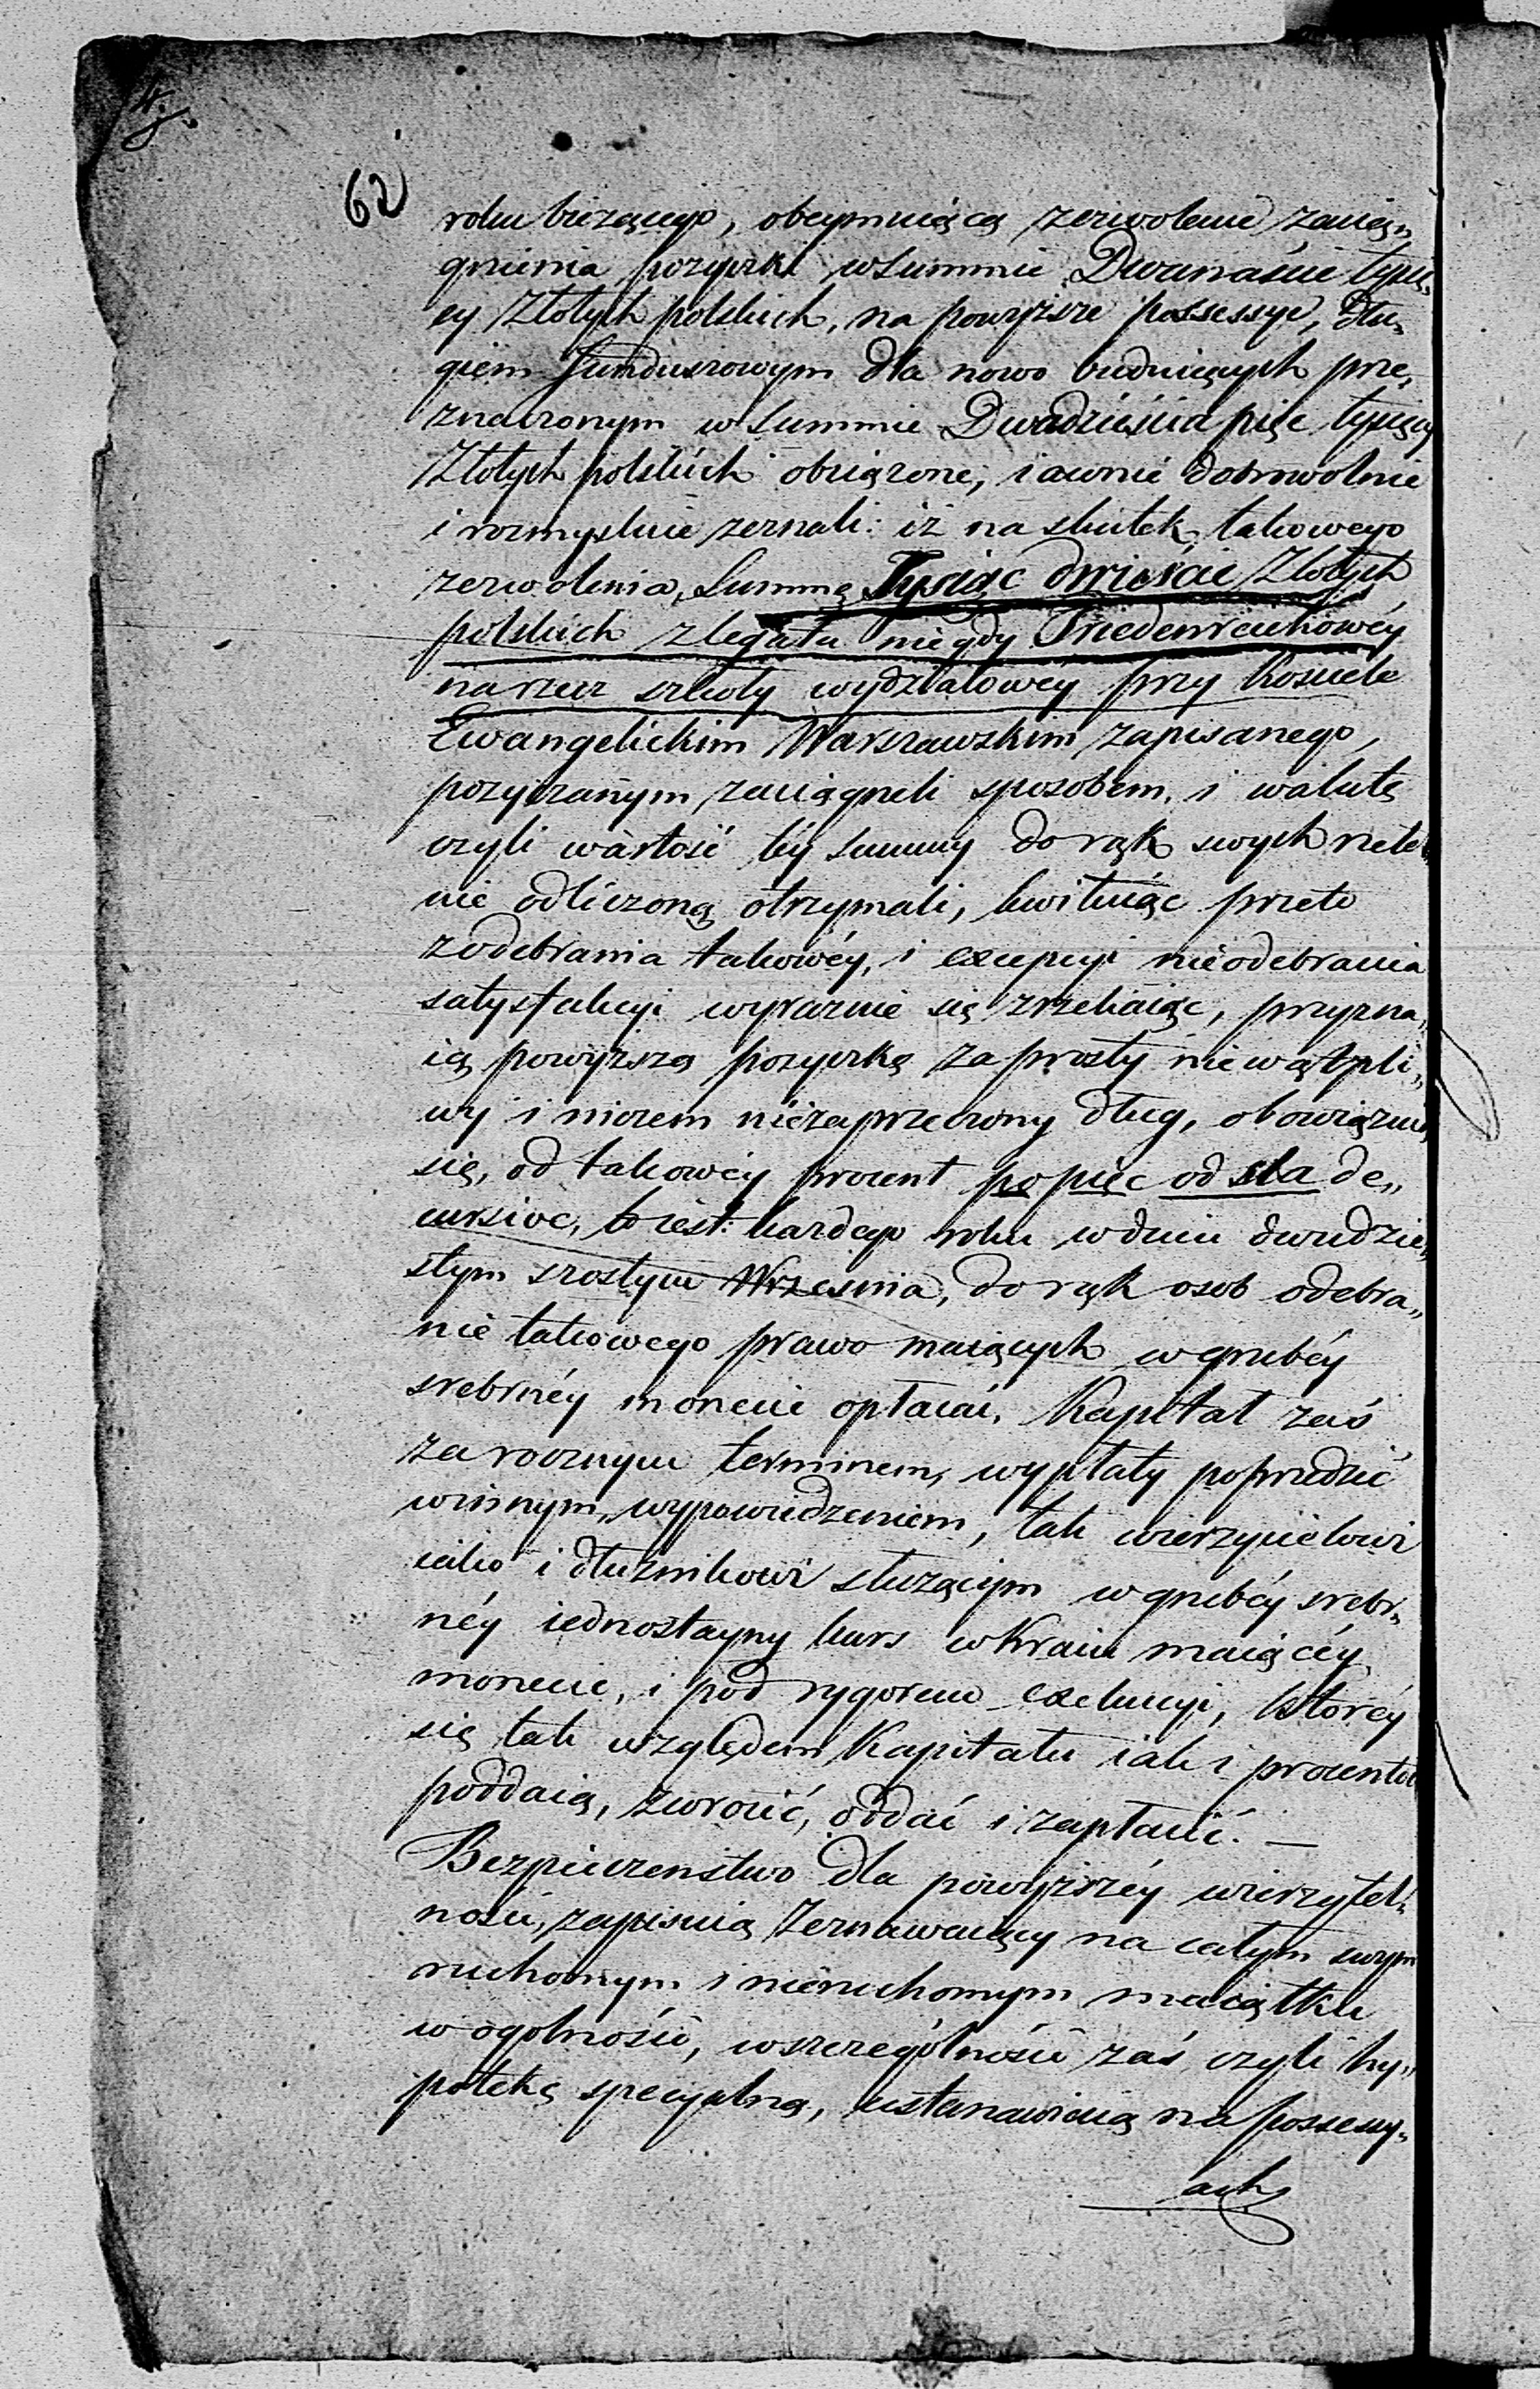 4.
62
roku bieżącego, obeymuiącą zezwolenie zaciąg„
gnienia pożyczki w Summie Dwanaście tysię„
cy Złotych polskich, na powyższe possessye, dłu„
giem Funduszowym dla nowo buduiących prze„
znaczonym w Summie Dwadzieścia pięc tysięcy
Złotych polskich obciążone, iawnie dobrowolnie
i rozmyslnie zeznali: iż na skutek takowego
zezwolenia, Summę Tysiąc dwieście Złotych
polskich z legatu niegdy
na rzecz szkoły wydziałowey przy Kosciele
Ewangelickim Warszawskim zapisanego,
pożyczanym zaciągneli sposobem, i walutę
czyli wartość téy Summy do rąk swych rzetel
nie odliczoną otrzymali, kwituiąc przeto
z odebrania takowéy, i excepcyi nieodebrania
satysfakcyi wyraznie się zrzekaiąc, przyzna„
ią powyższą pożyczkę za prosty niewątpli„
wy i niczem niezaprzeczony dług, obowiązuią
się, od takowéy procent po pięc od sta de„
cursive, to iest: każdego roku w dniu dwudzie„
stym szostym Wrzesnia, do rąk osob odebra„
nie takowego prawo maiących w grubéy
srebrnéy monecie opłacać, Kapitał zaś
za rocznym terminem, wypłaty poprzedzić
winnym, wypowiedzeniem, tak wierzycielowi
iako i dłużnikowi służącym w grubéy srebr„
néy iednostayny kurs w Kraiu maiącéy
monecie, i pod rygorem exekucyi, któréy
się tak względem Kapitału iak i procentu
poddaią, zwrocić, oddać i zapłacić. —
Bezpieczeństwo dla powyższéy wierzytel„
ności, zapisuią Zeznawaiący na całym swym
ruchomym i nieruchomym maiątku
w ogolności, w szczególności zaś czyli hy„
potekę specyalną, ustanawiaią na possessy„
ach